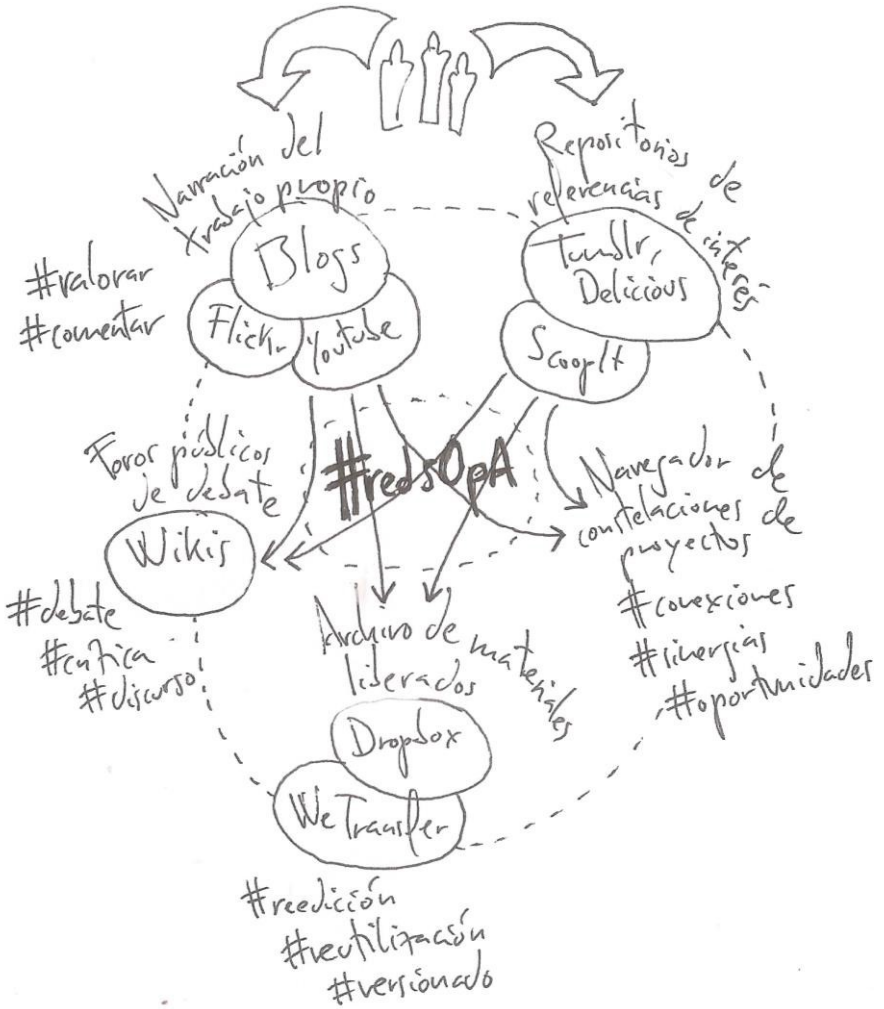 Narración del
trabajo propio
Blogs
Flickr
Youtube
#valorar
#comentar
Repositorios de
referencias de interés
Tumblr,
Delicious
ScoopIt
#redsOpA
Foros públicos
de debate
Wikis
#debate
#crítica
#discurso
Navegador de
constelaciones de
proyectos
#conexiones
#sinergias
#oportunidades
Archivo de materiales
liberados
Dropbox
WeTransfer
#reedición
#reutilización
#versionado